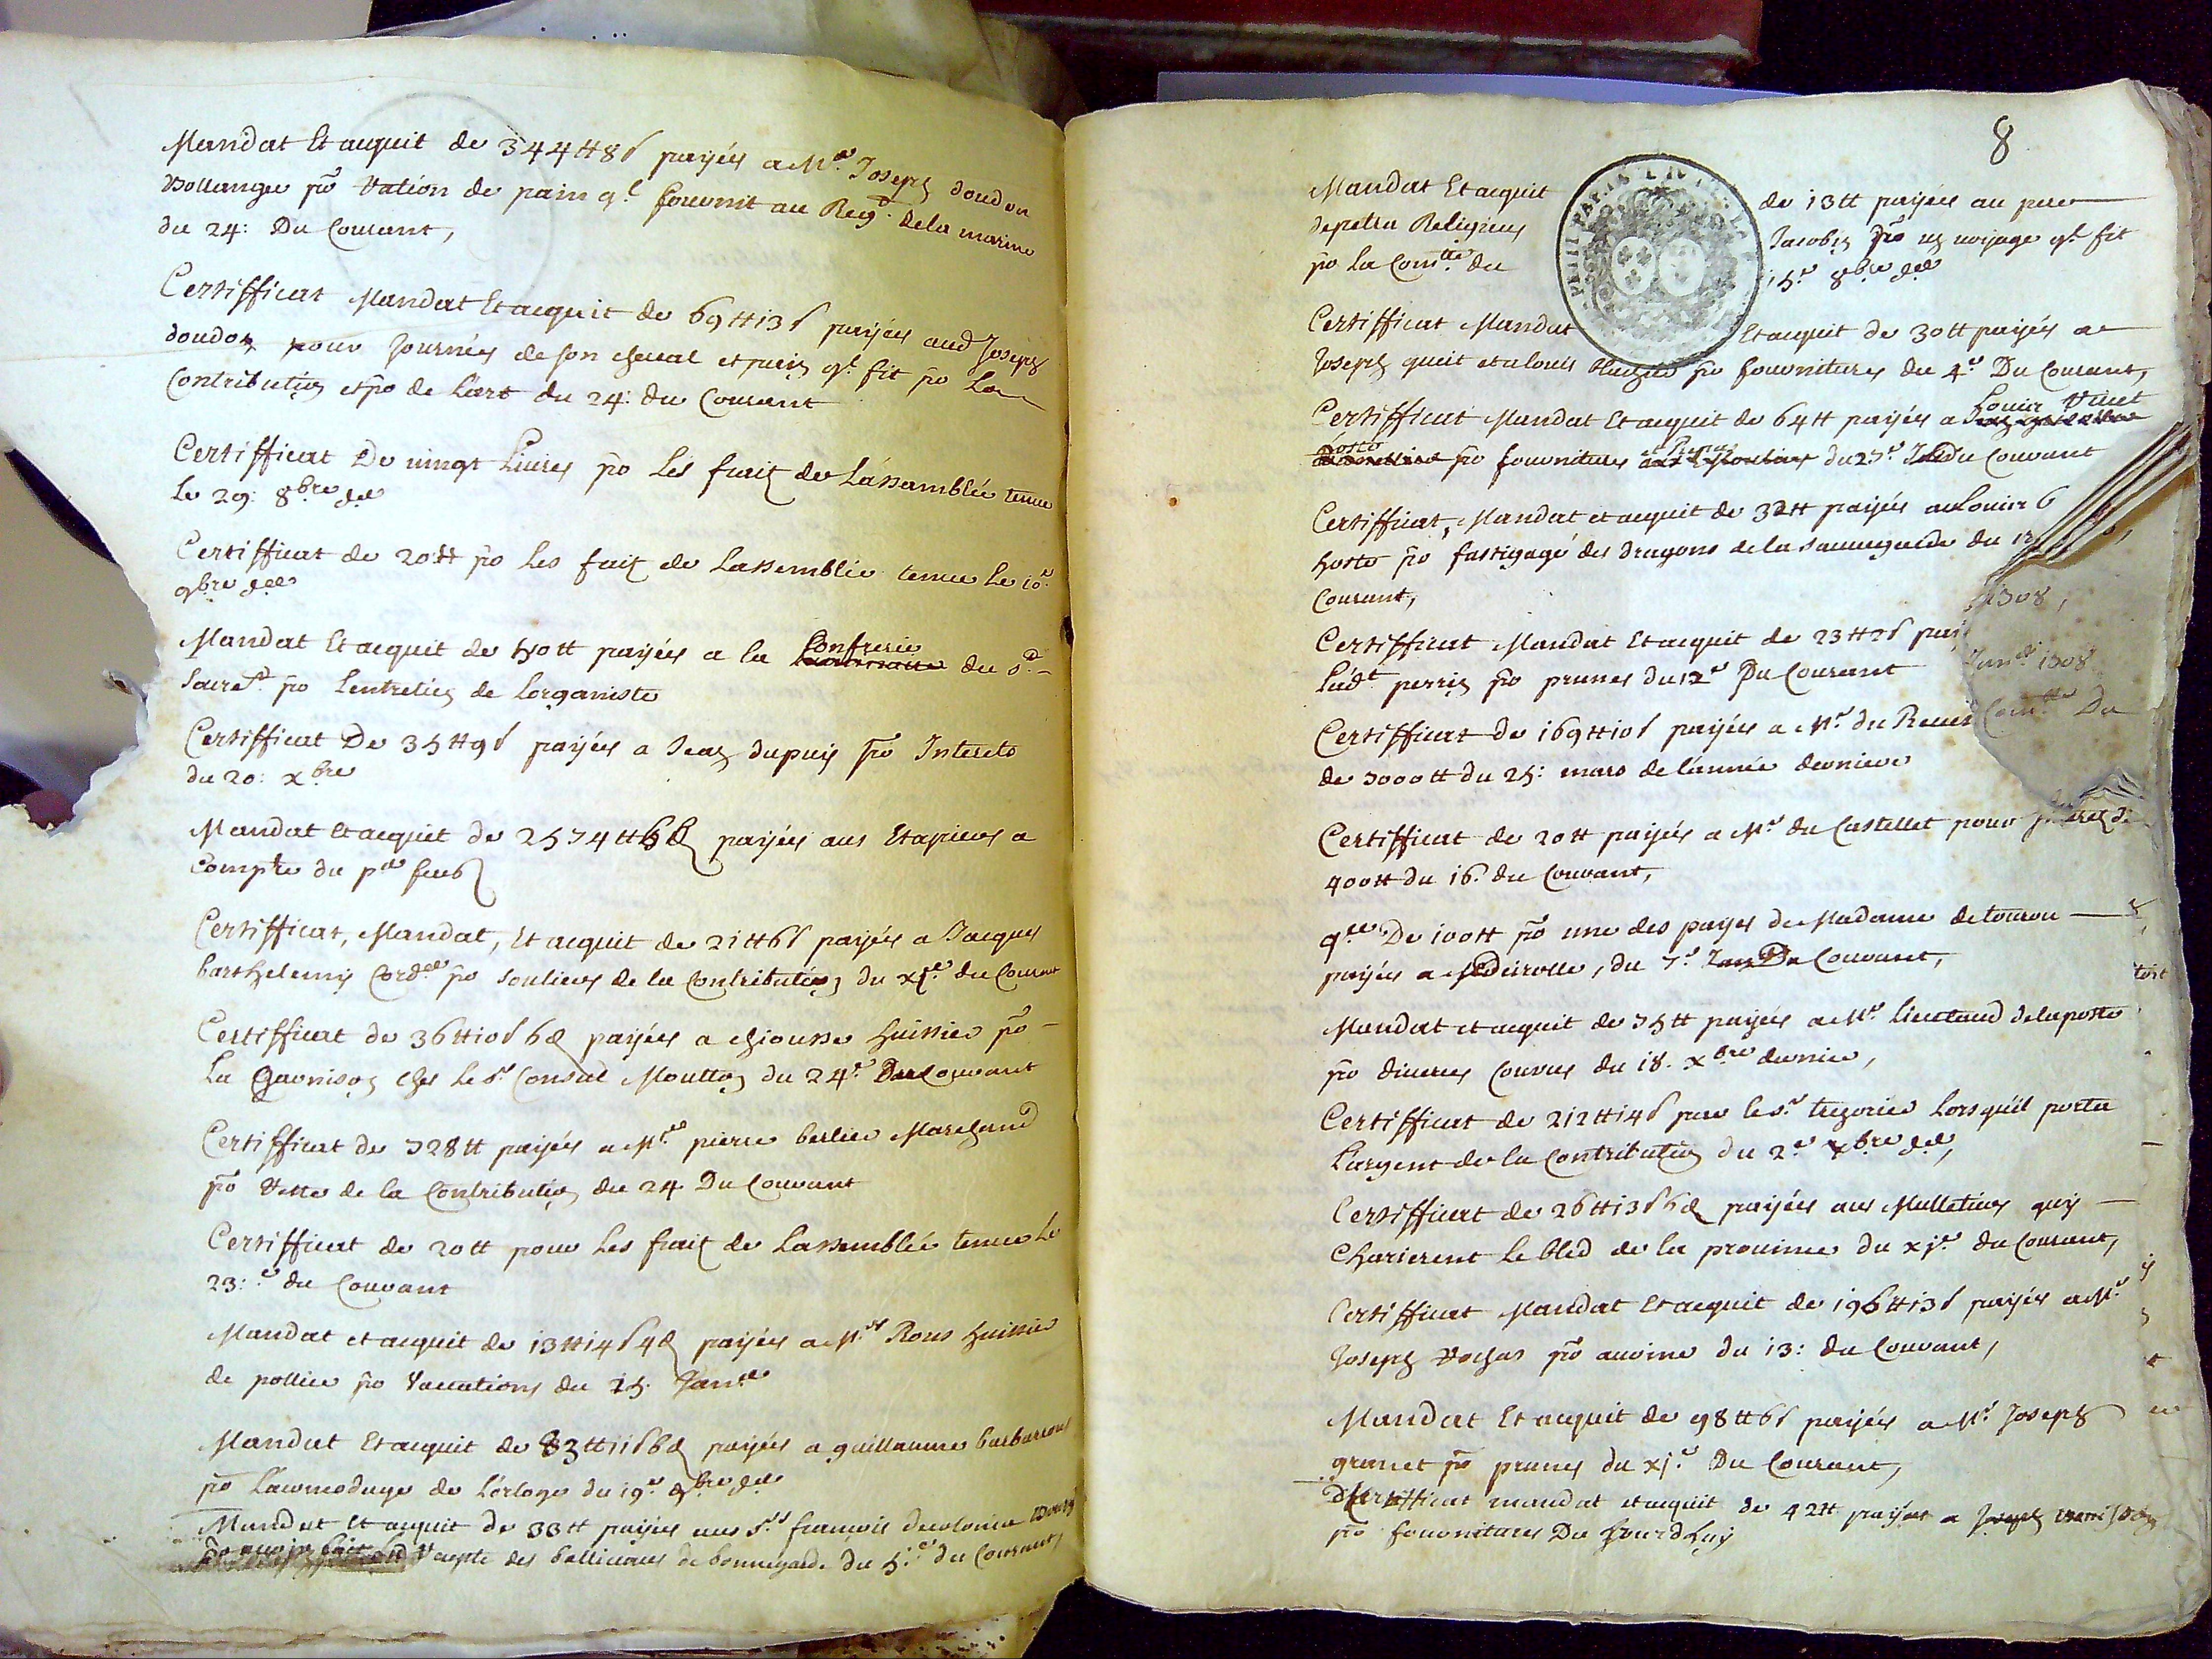 Mandat Et acquit de 344tt 8s payées a Mre Joseph doudon
Bollanger po Ration de pain ql fouornit au Regt de la marine
du 24: Du Courant,
Certifficat Mandat Et acquit de 69tt 13s payées aud Joseph
doudon pour Journées de son cheval et puis ql fit po La
Contribution et po de Lart du 24: du Courant
Certifficat De vingt Livres po Les fraiz de L'assemblée tenue
Le 29: 8bre der
Certifficat de 20tt po Les faiz de Lassemblée tenue Le 10e
9bre der
Mandat Et acquit de 150tt payées a la Confrerie du St
Sacret po Lentretien de Lorganiste
Certifficat De 35tt 9s payées a Jean dupuis po Interets
du 20: xbre
Mandat Et acquit de 2574tt 6d payées aus Etapiers a
Compte du pre feub
Certifficat, Mandat, Et acquit de 21tt 6s payées a Jacques
barthelemy Cordel po Souliers de la Contribution du xje du Courant
Certifficat de 36tt 10s 6d payées a chiousse huissier po
La Gavnison ches Le Sr Consul Moutton du 24e Du Couvant
Certifficat de 328tt payées a Mre pierre berlier Marchand
po Reste de la Contribution du 24 Du Couvant
Certifficat de 20tt pour Les fraiz de Lassemblée tenue Le
23:e du Couvant
Mandat et acquit de 13tt 14s 4d payées a Mre Rous huissier
de pollice po Vacations du 25. Janer
Mandat Et acquit de 83tt 11s 6d payées a guillaume barbarous
po Lacomodage de Lorloge du 19e 9bre der
Mandat Et acquit de 33tt payées aus Srs francois decolonia
Compte des bassiaques de bonnegarde du 5e du Courant
8
Mandat Et acquit de 13tt payées au pere
depetra Religieus Jacobin po un voyage ql fit
po La Comtte du 15e 8bre der
Certifficat Mandat Et acquit de 30tt payés a
Joseph gueit et a Louis po fouonitures du 4e Du Courant,
Certifficat Mandat Et acquit de 64tt payées a Louis Vinet
hoste po fouonitures du 27e du Couvant
Certifficat, Mandat et acquit de 32tt payées a Louis
hoste po fastigage des dragons de la Sauvegarde du 12
Courant,
1308,
Certifficat Mandat Et acquit de 23tt 2s pay
Ludt perrin po prunes du 12e Du Courant
Jander 1308
Certifficat de 169tt 10s payées a Mr du Reuest Comtte Du
de 3000tt du 25: mars de L'année derniere
Certifficat de 20tt payées a Mr du Castellet pour
400tt du 16. du Couvant,
qce De 100tt po une des payes de Madame de touron
payées a, du 7e Du Couvant,
Mandat et acquit de 35tt payées a Mr Lieutaud de la poste
po diverses Courses du 18. xbre dernier,
Certifficat de 212tt 14s par le Sr trezorier Lors quil porta
Largent de la Contribution du 2e xbre der,
Certifficat de 26tt 13s 6d payées aus Mulletiers quy
Charierent Le bled de la province du xje du Courant,
Certifficat Mandat Et acquit de 196tt 13s payées a Mr
Joseph Rochas po avoine du 13: du Couvant,
Mandat Et acquit de 98tt 6s payées a Mr Joseph
granet po prunes du xje Du Courant,
Certifficat mandat et acquit de 42tt payées a Joseph
po fouonitures Du Jourdhuy